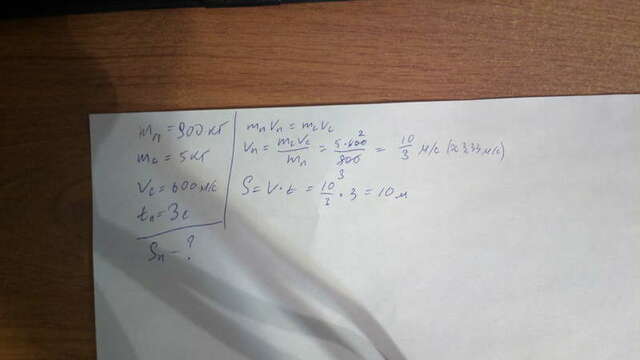 mп = 900 кг
mс = 5 кг
Vс = 600 м/с
tп = 3 с
Sп - ?
mп Vп = mс Vс
Vп = mсVс / mп = 5·600 2 / 900 3 = 10/3 м/с (≈ 3,33 м/с)
S = V · t = 10/3 · 3 = 10 м